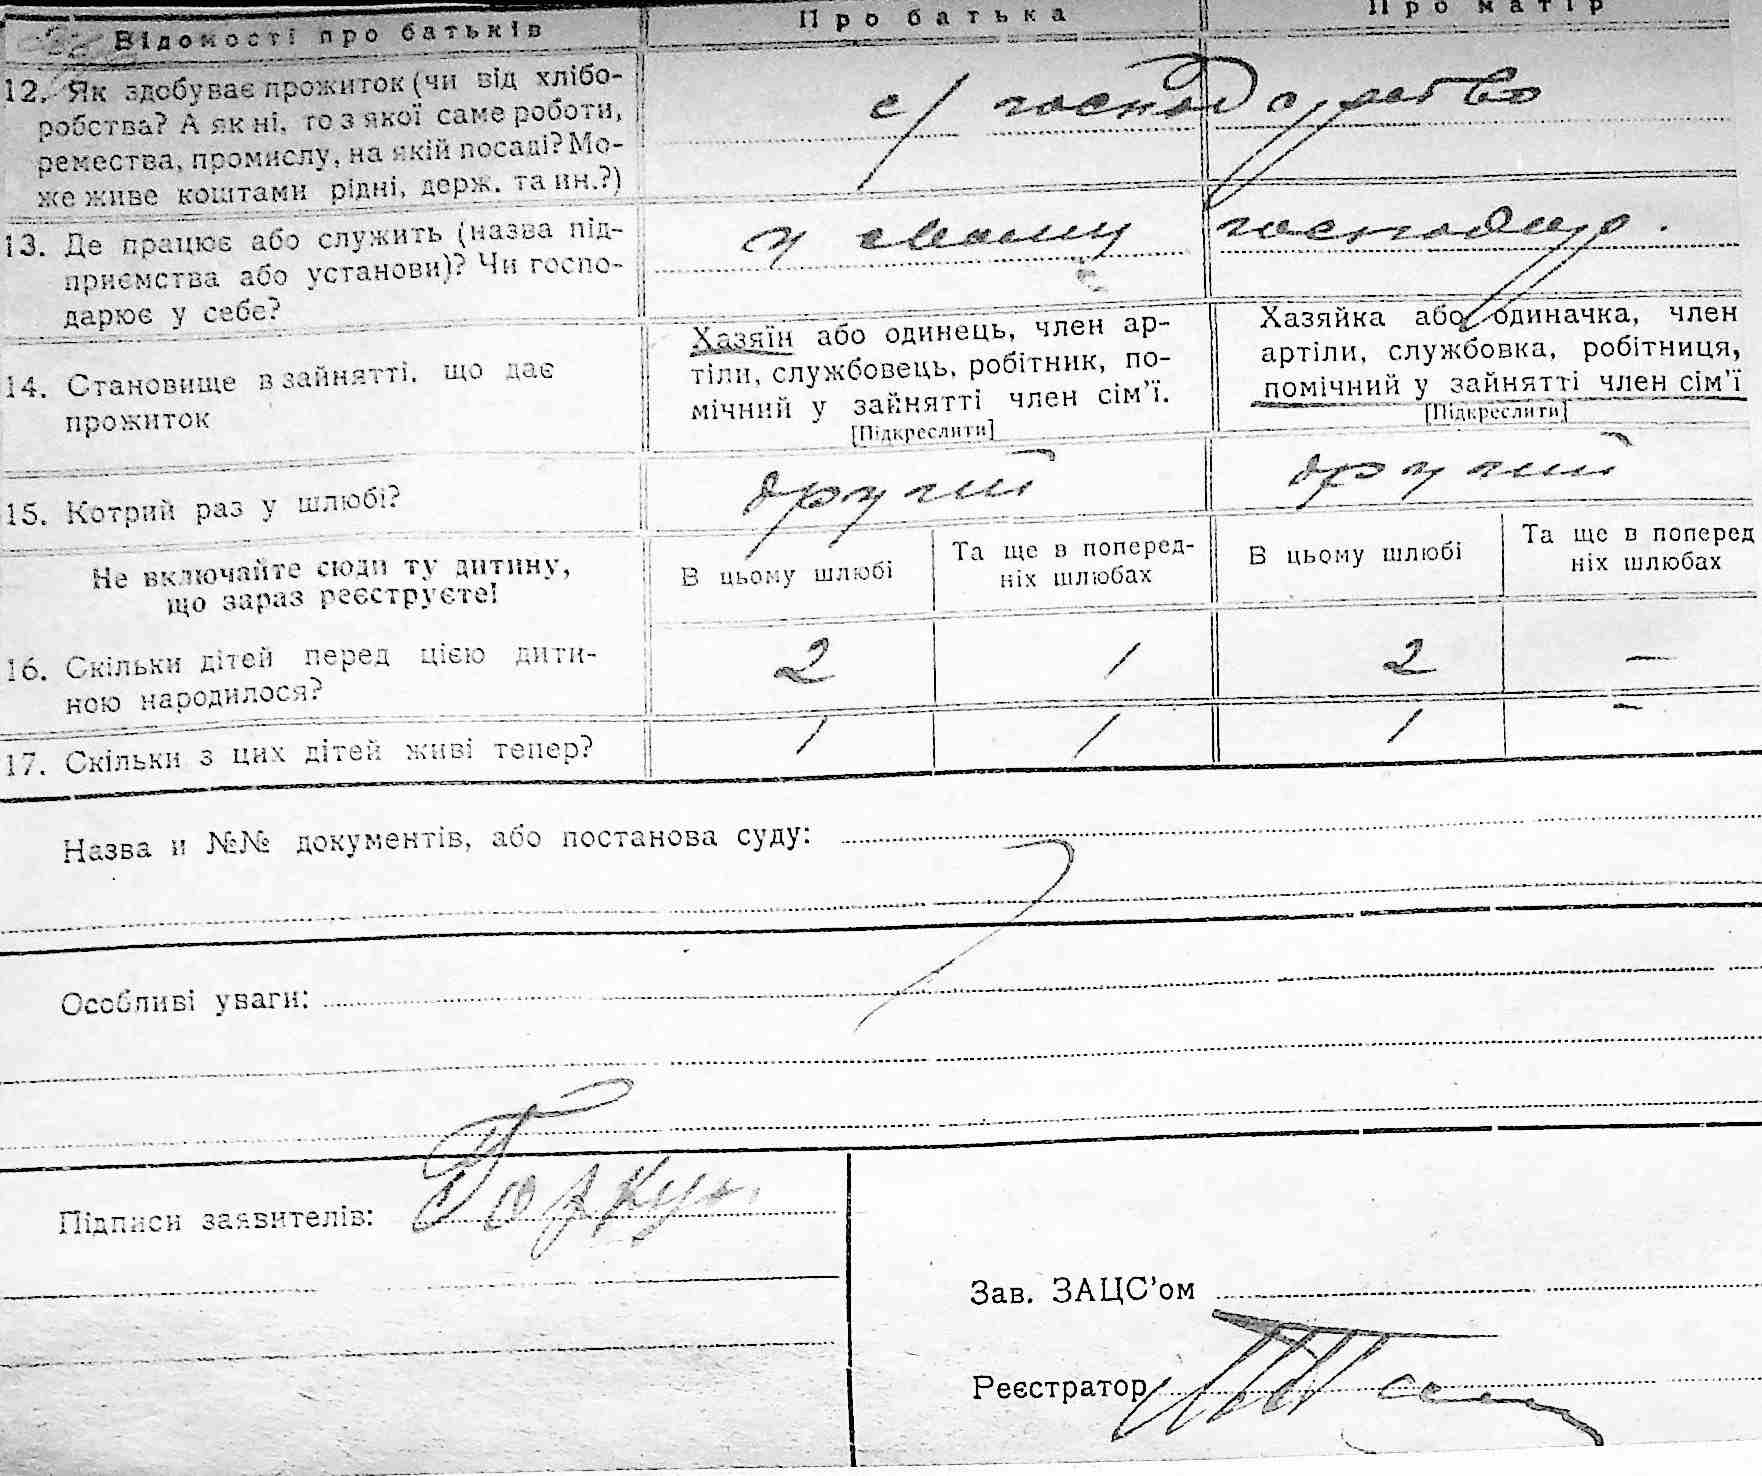 Відомості про батьків Про батька Про матір
12. Як здобуває прожиток (чи від хлібо-
робства? А як ні, то з якої саме роботи,
ремества, промислу, на якій посаді? Мо-
же живе коштами рідні, держ. та ин.?)
с/ господарство
13. Де працює або служить (назва під-
приємства або установи)? Чи госпо-
дарює у себе?
у своєму господар.
14. Становище в зайнятті, що дає
прожиток
Хазяїн або одинець, член ар-
тіли, службовець, робітник, по-
мічний у зайнятті член сім'ї.
[Підкреслити]
Хазяйка або одиначка, член
артіли, службовка, робітниця,
помічний у зайнятті член сім'ї
[Підкреслити]
15. Котрий раз у шлюбі? другий другий
Не включайте сюди ту дитину,
що зараз реєструєте!
В цьому шлюбі
Та ще в поперед-
ніх шлюбах
В цьому шлюбі
Та ще в поперед
ніх шлюбах
16. Скільки дітей перед цією дити-
ною народилося?
2 1 2 —
17. Скільки з цих дітей живі тепер? 1 1 1 —
Назва и №№ документів, або постанова суду:
Особливі уваги:
Підписи заявителів:
Зав. ЗАЦС'ом
Реєстратор